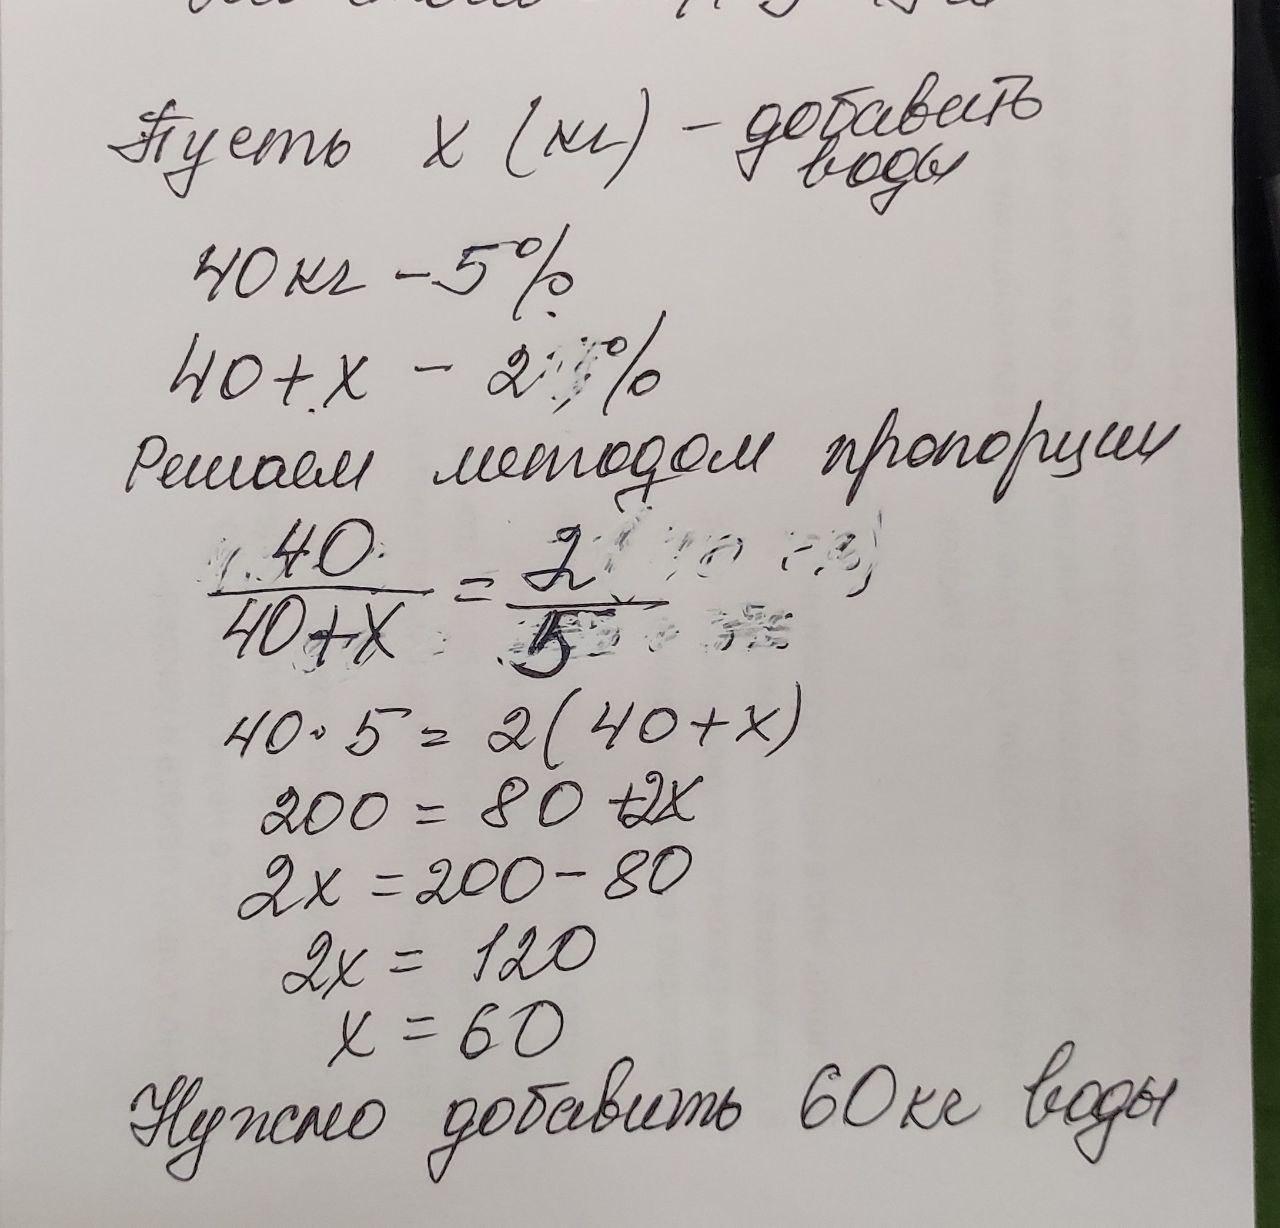 Пусть x (кг) - добавить
воды
40 кг - 5%
40 + x - 2%
Решаем методом пропорции
40/(40+x) = 2/5
40·5 = 2(40+x)
200 = 80+2x
2x = 200-80
2x = 120
x = 60
Нужно добавить 60 кг воды